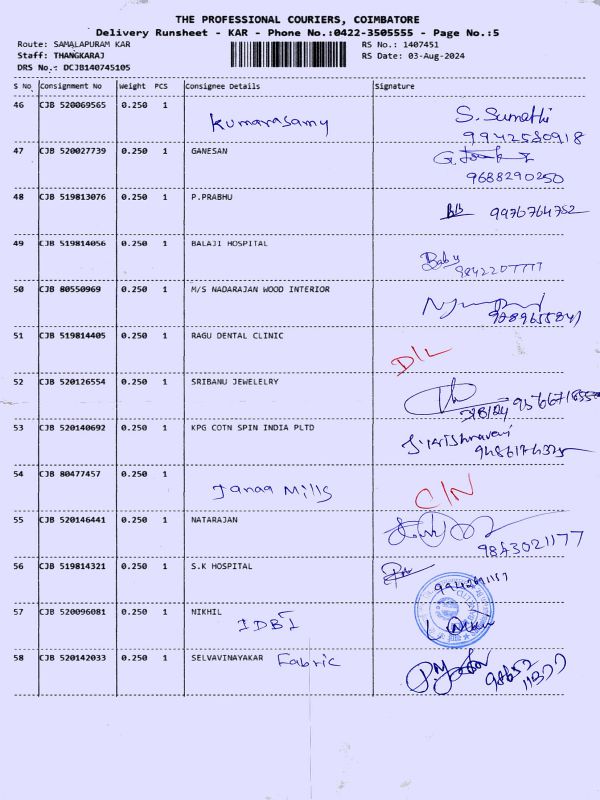 THE PROFESSIONAL COURIERS, COIMBATORE
Delivery Runsheet - KAR - Phone No.:0422-3505555 - Page No.:5
Route: SAMALAPURAM KAR RS No.: 1407451
Staff: THANGKARAJ RS Date: 03-Aug-2024
DRS No.: DCJB140745105
S No Consignment No Weight PCS Consignee Details Signature
46 CJB 520069565 0.250 1 Kumarasamy S. Sumathi
9942580918
47 CJB 520027739 0.250 1 GANESAN
9688290250
48 CJB 519813076 0.250 1 P.PRABHU
9976764752
49 CJB 519814056 0.250 1 BALAJI HOSPITAL Baby
9842207777
50 CJB 80550969 0.250 1 M/S NADARAJAN WOOD INTERIOR
51 CJB 519814405 0.250 1 RAGU DENTAL CLINIC D/L
52 CJB 520126554 0.250 1 SRIBANU JEWELELRY
53 CJB 520140692 0.250 1 KPG COTN SPIN INDIA PLTD
54 CJB 80477457 0.250 1 Janaa Mills C/N
55 CJB 520146441 0.250 1 NATARAJAN
9843021177
56 CJB 519814321 0.250 1 S.K HOSPITAL
57 CJB 520096081 0.250 1 NIKHIL
IDBI
58 CJB 520142033 0.250 1 SELVAVINAYAKAR Fabric